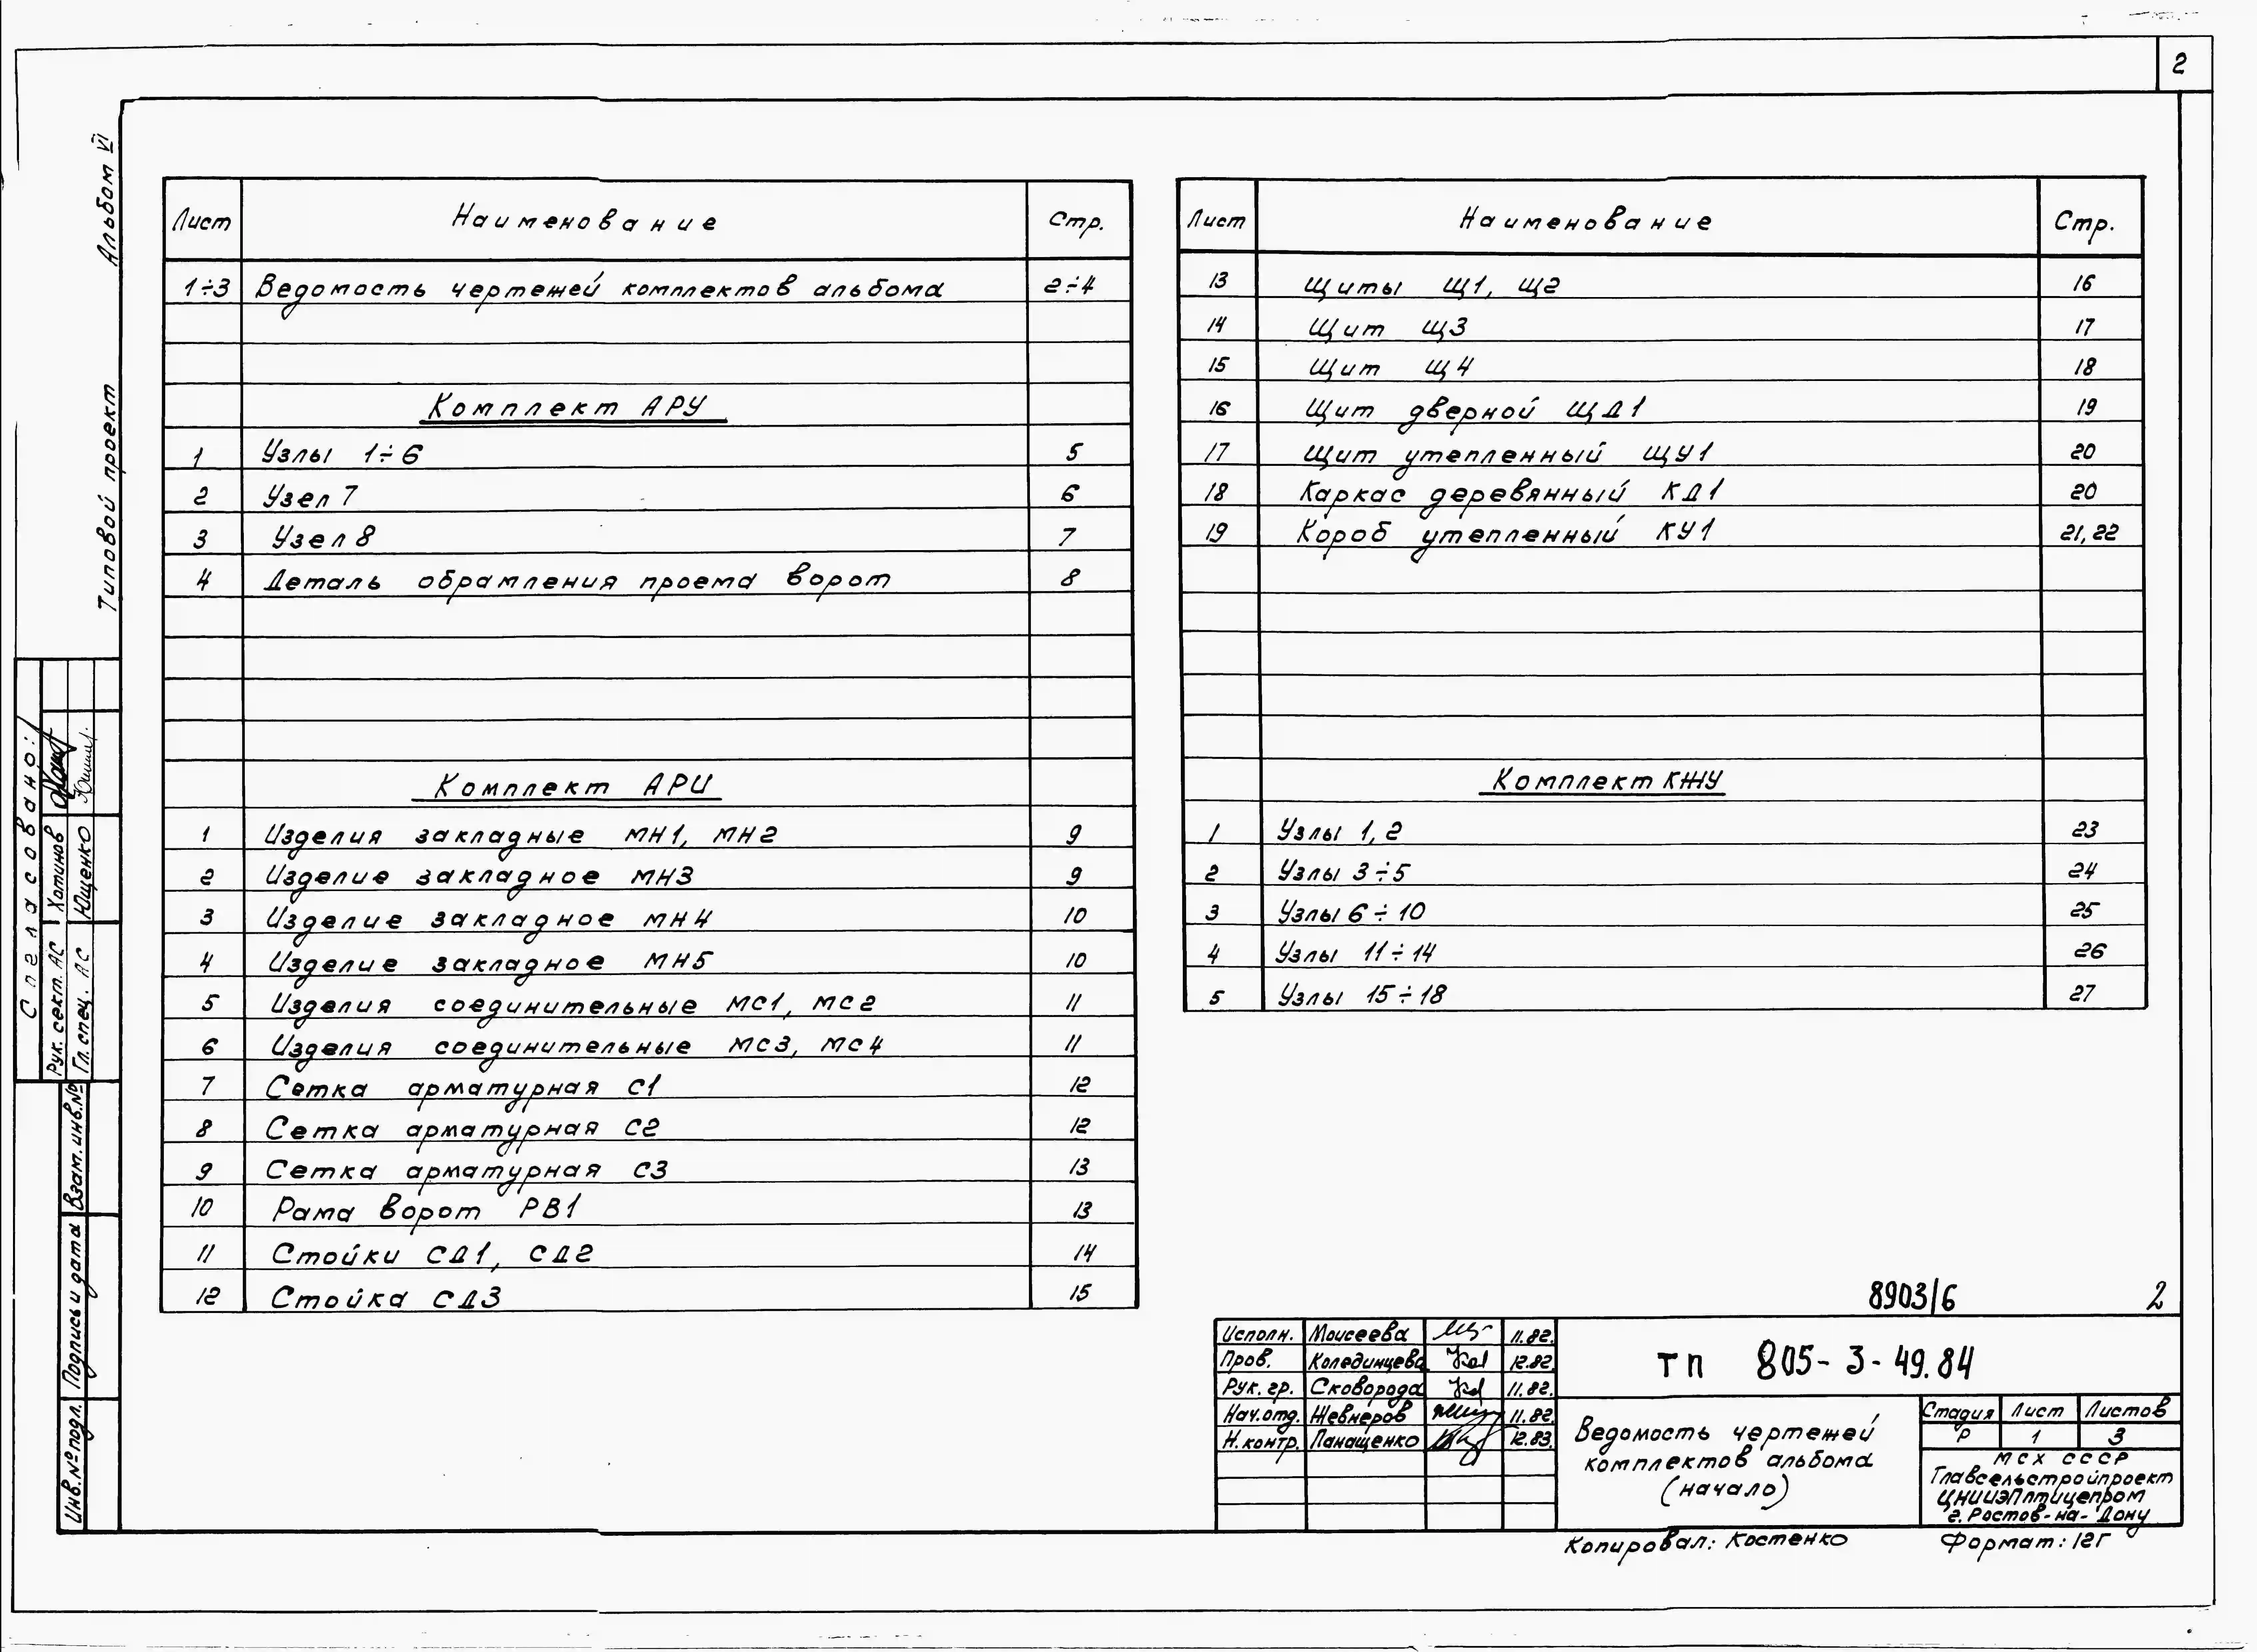 2
Альбом VI
Типовой проект
Лист Наименование Стр.
1÷3 Ведомость чертежей комплектов альбома 2÷4
Комплект АРУ
1 Узлы 1÷6 5
2 Узел 7 6
3 Узел 8 7
4 Деталь обрамления проема ворот 8
Комплект АРИ
1 Изделия закладные МН1, МН2 9
2 Изделие закладное МН3 9
3 Изделие закладное МН4 10
4 Изделие закладное МН5 10
5 Изделия соединительные МС1, МС2 11
6 Изделия соединительные МС3, МС4 11
7 Сетка арматурная С1 12
8 Сетка арматурная С2 12
9 Сетка арматурная С3 13
10 Рама ворот РВ1 13
11 Стойки СД1, СД2 14
12 Стойка СД3 15
Лист Наименование Стр.
13 Щиты Щ1, Щ2 16
14 Щит Щ3 17
15 Щит Щ4 18
16 Щит дверной ЩД1 19
17 Щит утепленный ЩУ1 20
18 Каркас деревянный КД1 20
19 Короб утепленный КУ1 21, 22
Комплект КЖУ
1 Узлы 1, 2 23
2 Узлы 3÷5 24
3 Узлы 6÷10 25
4 Узлы 11÷14 26
5 Узлы 15÷18 27
Согласовано:
Рук. сект. АС Хатинов
Гл. спец. АС Ющенко
Взам. инв. №
Подпись и дата
Инв. № подл.
8903/6 2
Исполн. Моисеева 11.82.
Пров. Колединцева 12.82.
Рук. гр. Сковорода 11.82.
Нач. отд. Жевнеров 11.82.
Н. контр. Панащенко 12.83.
ТП 805-3-49.84
Ведомость чертежей
комплектов альбома
(начало)
Стадия Лист Листов
Р 1 3
МСХ СССР
Главсельстройпроект
ЦНИИЭПптицепром
г. Ростов-на-Дону
Копировал: Костенко Формат: 12Г